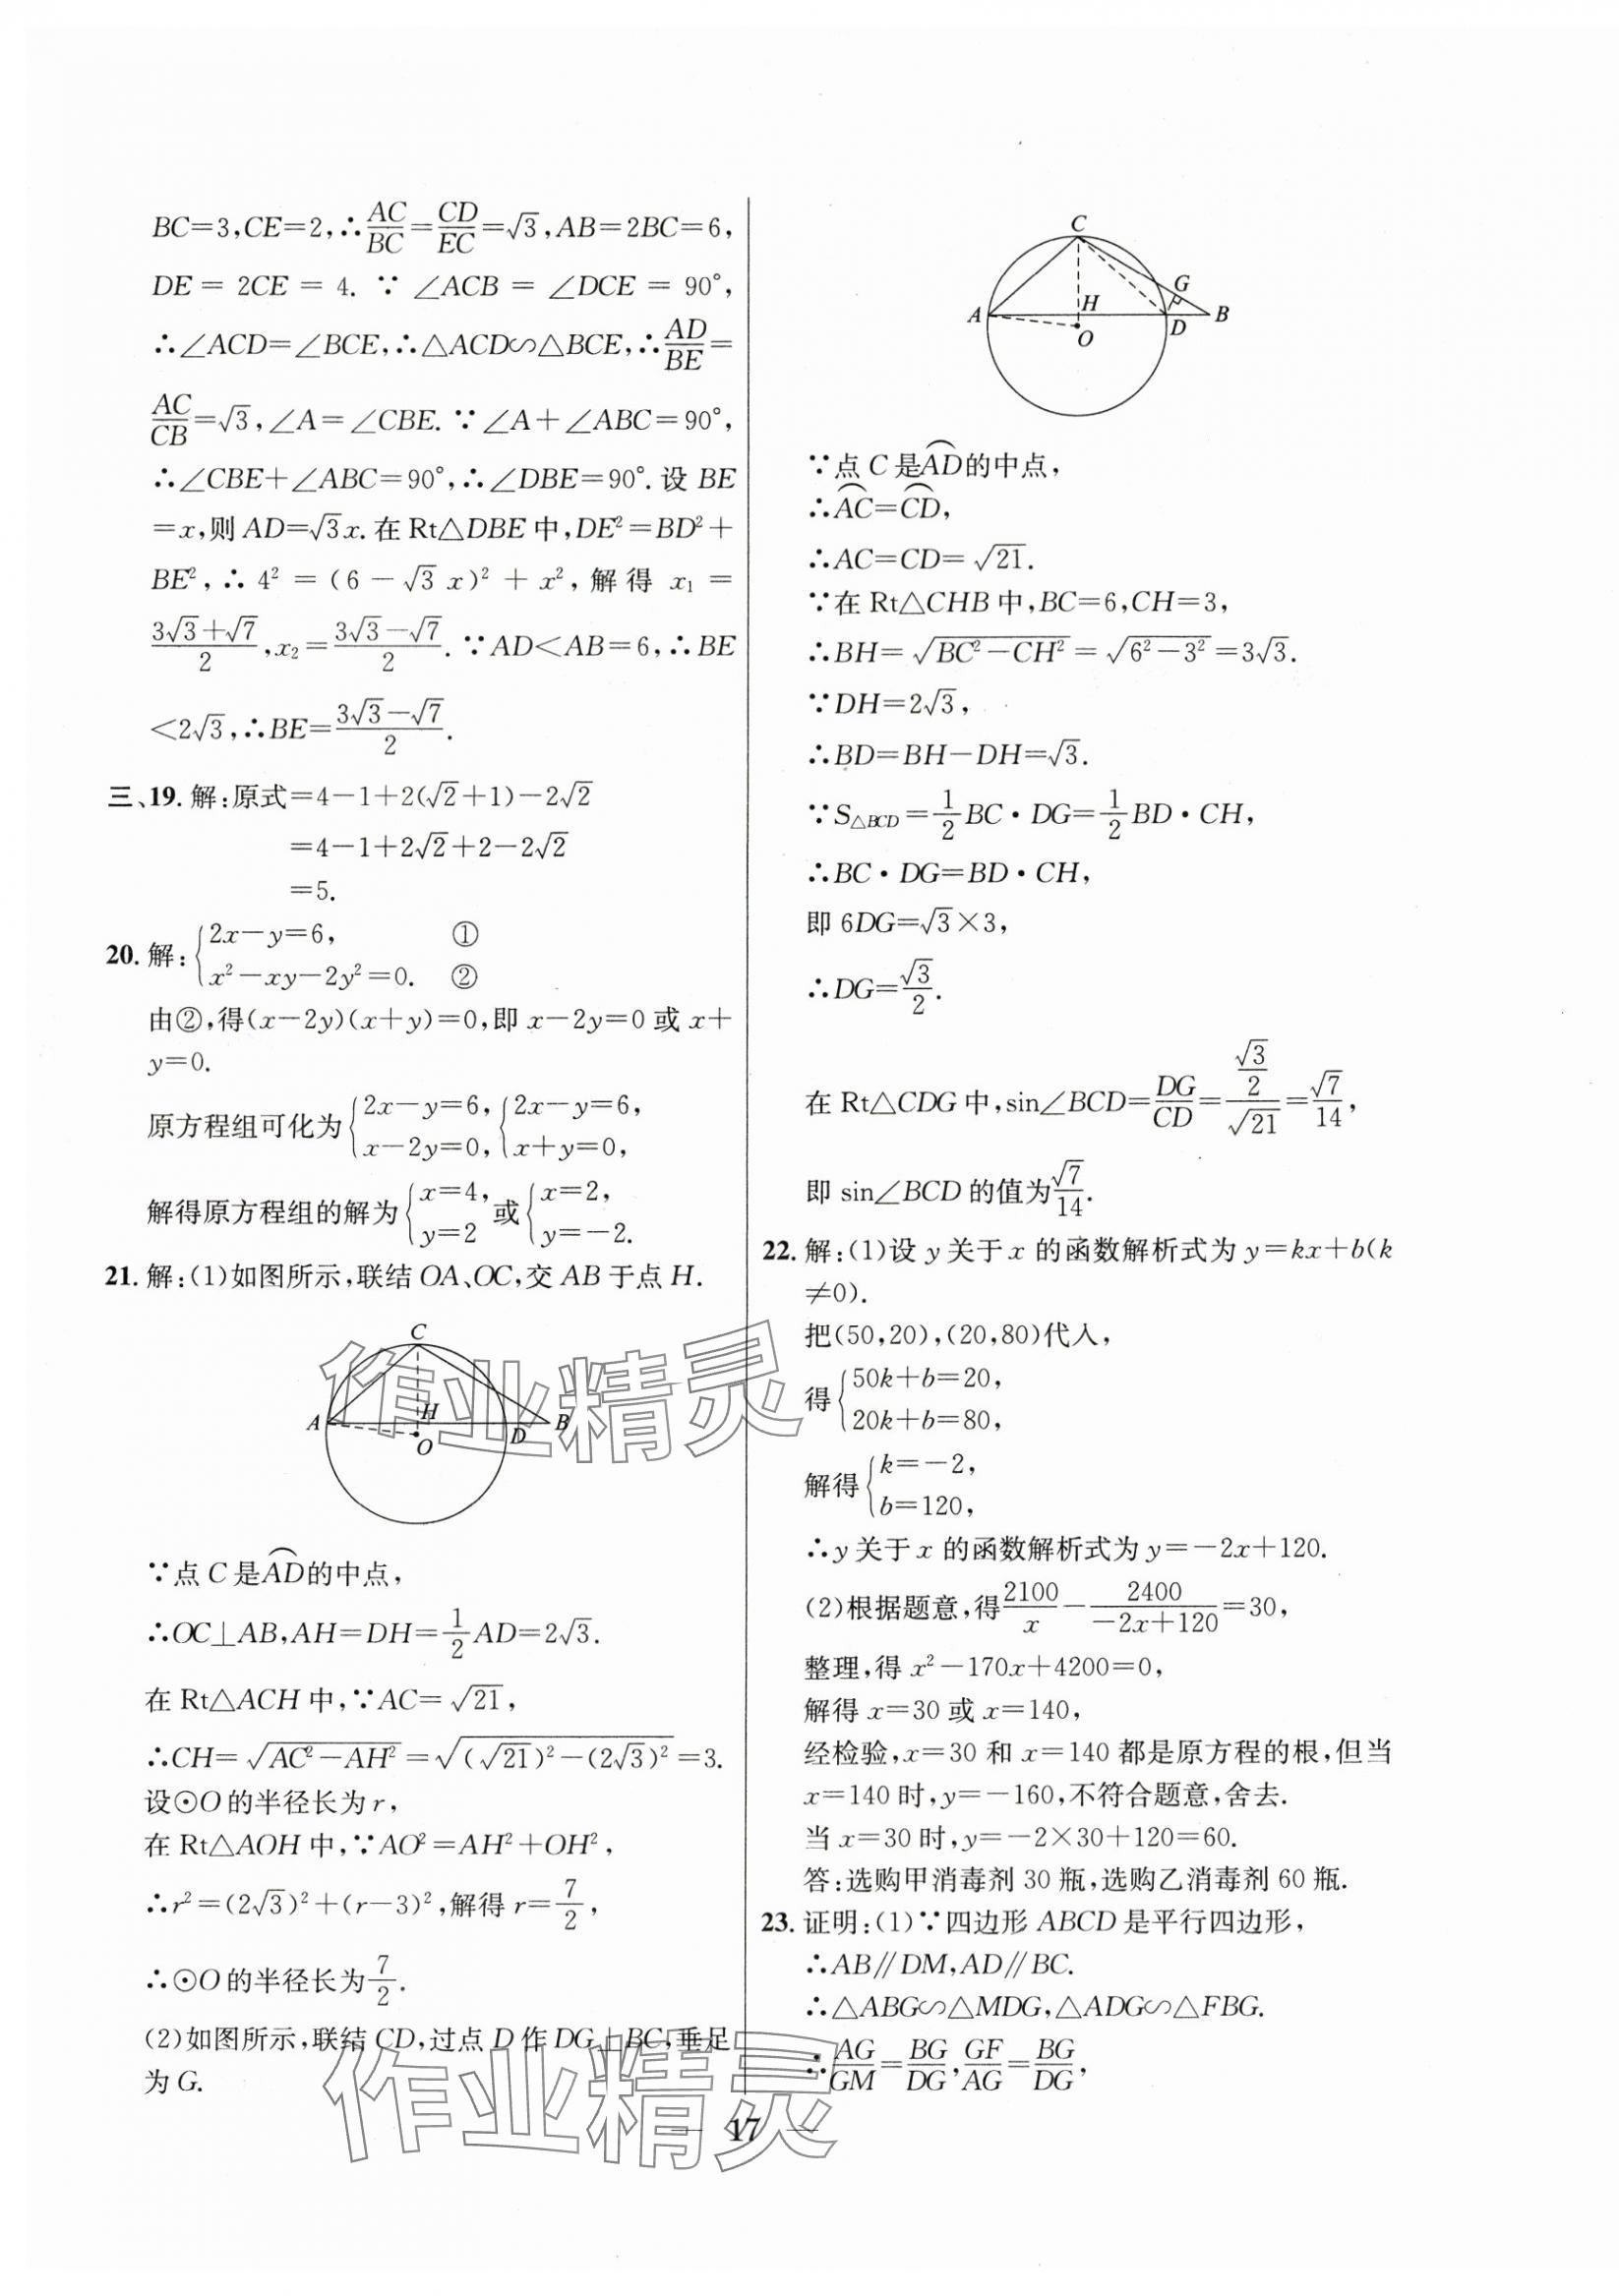 BC=3,CE=2,∴AC/BC=CD/EC=√3,AB=2BC=6,
DE=2CE=4.∵∠ACB=∠DCE=90°,
∴∠ACD=∠BCE,∴△ACD∽△BCE,∴AD/BE=
AC/CB=√3,∠A=∠CBE.∵∠A+∠ABC=90°,
∴∠CBE+∠ABC=90°,∴∠DBE=90°.设BE
=x,则AD=√3x.在Rt△DBE中,DE²=BD²+
BE²,∴4²=(6-√3x)²+x²,解得x₁=
(3√3+√7)/2,x₂=(3√3-√7)/2.∵AD<AB=6,∴BE
<2√3,∴BE=(3√3-√7)/2.
三、19.解:原式=4-1+2(√2+1)-2√2
=4-1+2√2+2-2√2
=5.
20.解:{2x-y=6, ①
x²-xy-2y²=0. ②
由②,得(x-2y)(x+y)=0,即x-2y=0或x+
y=0.
原方程组可化为{2x-y=6, x-2y=0, {2x-y=6, x+y=0,
解得原方程组的解为{x=4, y=2 或{x=2, y=-2.
21.解:(1)如图所示,联结OA、OC,交AB于点H.
C
A
H
B
D
O
∵点C是⌒AD的中点,
∴OC⊥AB,AH=DH=1/2AD=2√3.
在Rt△ACH中,∵AC=√21,
∴CH=√(AC²-AH²)=√((√21)²-(2√3)²)=3.
设⊙O的半径长为r,
在Rt△AOH中,∵AO²=AH²+OH²,
∴r²=(2√3)²+(r-3)²,解得r=7/2,
∴⊙O的半径长为7/2.
(2)如图所示,联结CD,过点D作DG⊥BC,垂足
为G.
C
G
A
H
B
D
O
∵点C是⌒AD的中点,
∴⌒AC=⌒CD,
∴AC=CD=√21.
∵在Rt△CHB中,BC=6,CH=3,
∴BH=√(BC²-CH²)=√(6²-3²)=3√3.
∵DH=2√3,
∴BD=BH-DH=√3.
∵S△BCD=1/2BC·DG=1/2BD·CH,
∴BC·DG=BD·CH,
即6DG=√3×3,
∴DG=√3/2.
在Rt△CDG中,sin∠BCD=DG/CD=(√3/2)/√21=√7/14,
即sin∠BCD的值为√7/14.
22.解:(1)设y关于x的函数解析式为y=kx+b(k
≠0).
把(50,20),(20,80)代入,
得{50k+b=20, 20k+b=80,
解得{k=-2, b=120,
∴y关于x的函数解析式为y=-2x+120.
(2)根据题意,得2100/x-2400/(-2x+120)=30,
整理,得x²-170x+4200=0,
解得x=30或x=140,
经检验,x=30和x=140都是原方程的根,但当
x=140时,y=-160,不符合题意,舍去.
当x=30时,y=-2×30+120=60.
答:选购甲消毒剂30瓶,选购乙消毒剂60瓶.
23.证明:(1)∵四边形ABCD是平行四边形,
∴AB∥DM,AD∥BC.
∴△ABG∽△MDG,△ADG∽△FBG.
∴AG/GM=BG/DG,GF/AG=BG/DG,
— 17 —
作业精灵
作业精灵